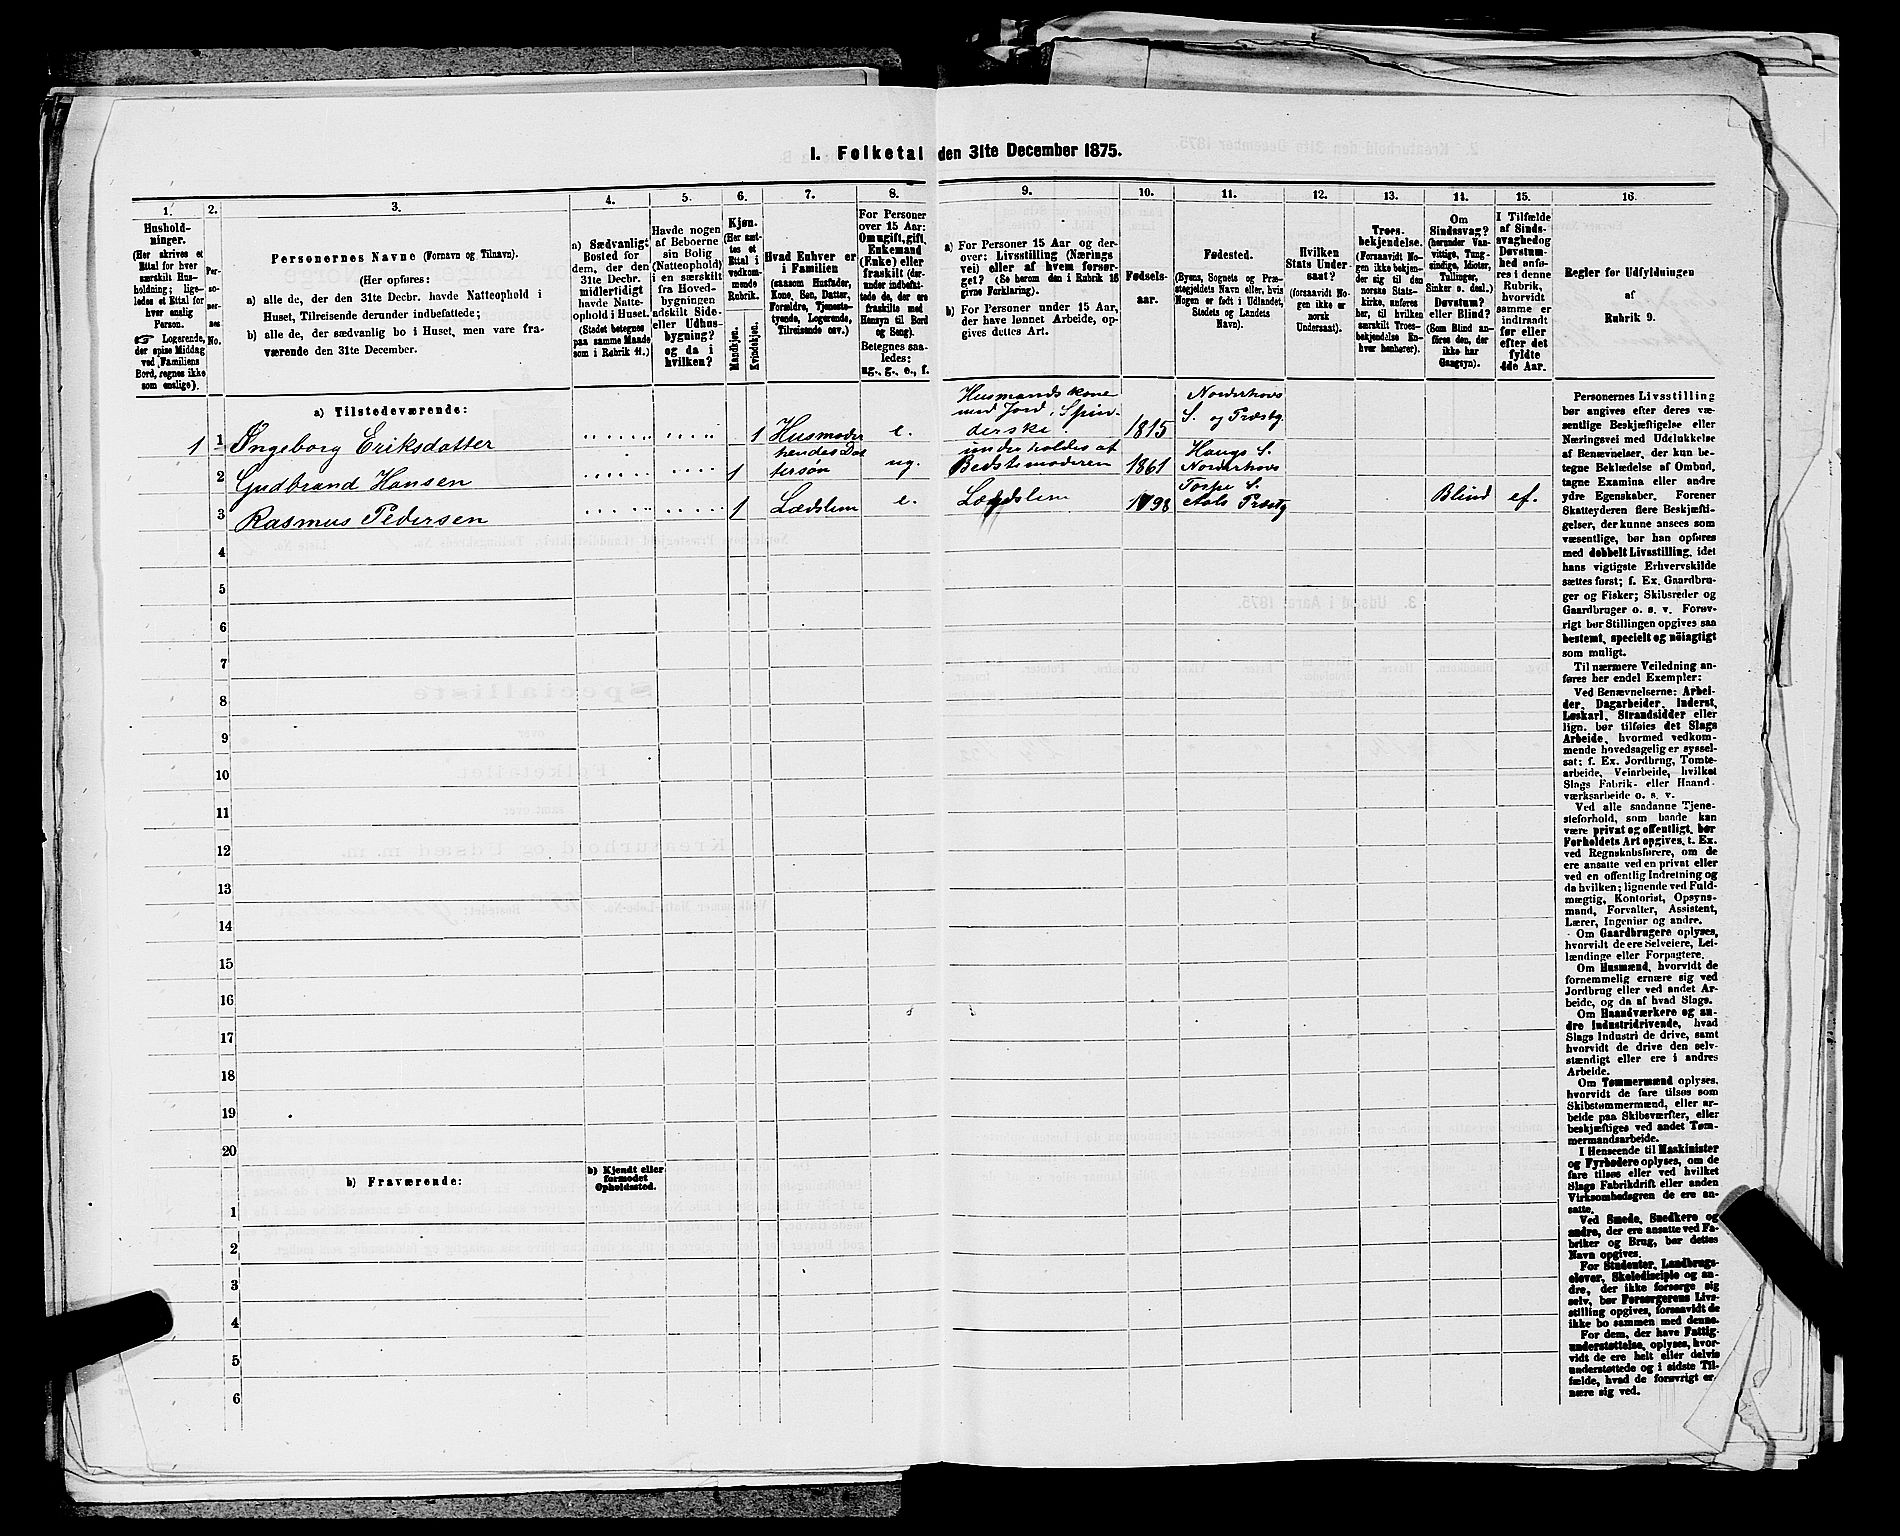 I. Folketal den 31te December 1875.
1.
Hushold-
ninger.
(Her skrives et
Ettal for hver
særskilt Hus-
holdning; lige-
ledes et Ettal for
hver enslig
Person.
☞ Logerende,
der spise Middag
ved Familiens
Bord, regnes ikke
som enslige).
2.
Per-
so-
ner-
nes
No.
3.
Personernes Navne (Fornavn og Tilnavn).
(Her opføres:
a) alle de, der den 31te Decbr. havde Natteophold i
Huset, Tilreisende derunder indbefattede;
b) alle de, der sædvanlig bo i Huset, men vare fra-
værende den 31te December.
4.
a) Sædvanligt
Bosted for
dem, der den
31te Decbr.
midlertidigt
havde Natte-
ophold i Huset.
(Stedet betegnes
paa samme Maade
som i Rubrik 11.)
5.
Havde nogen
af Beboerne
sin Bolig
(Natteophold)
i en særskilt
fra Hoved-
bygningen
adskilt Side-
eller Udhus-
bygning?
og da i
hvilken?
6.
Kjøn.
(Her sæt-
tes et
Ettal i
vedkom-
mende
Rubrik.
Mandkjøn.
Kvindekjøn.
7.
Hvad Enhver er
i Familien
(saasom Husfader,
Kone, Søn, Datter,
Forældre, Tjeneste-
tyende, Logerende,
Tilreisende osv.)
8.
For Personer
over 15 Aar:
Om ugift, gift,
Enkemand
(Enke) eller
fraskilt (der-
under indbefat-
tede de, der ere
fraskilte med
Hensyn til Bord
og Seng).
Betegnes saa-
ledes:
ug., g., e., f.
9.
a) For Personer 15 Aar og der-
over: Livsstilling (Nærings
vei) eller af hvem forsør-
get. (Se herom den i Rubrik 16
givne Forklaring).
b) For Personer under 15 Aar,
der have lønnet Arbeide, op-
gives dettes Art.
10.
Fødsels-
aar.
11.
Fødested.
(Byens, Sognets og Præ-
stegjeldets Navn eller, hvis
Nogen er født i Udlandet,
Stedets og Landets
Navn).
12.
Hvilken
Stats Under-
saat?
(forsaavidt No-
gen ikke er
norsk
Undersaat).
13.
Troes-
bekjendelse.
(Forsaavidt No-
gen ikke bekjen-
der sig til den
norske Stats-
kirke, anføres
her, til hvilken
særskilt Troes-
bekjendelse En-
hver henhører).
14.
Om
Sindssvag?
(herunder Van-
vittige, Tung-
sindige, Idioter,
Tullinger,
Sinker o. desl.)
Døvstum?
eller Blind?
(Som Blind an-
føres den, der
ikke har
Gangsyn).
15.
I Tilfælde
af Sinds-
svaghedog
Døvstum-
hed anfø-
res i denne
Rubrik,
hvorvidt
samme er
indtraadt
før eller
efter det
fyldte
4de Aar.
16.
Regler for Udfyldningen
af
Rubrik 9.
a) Tilstedeværende:
1 1 Ingeborg Eriksdatter 1 Husmoder e. Husmands kone med Jord, Spinderske. 1815 Norderhovs S. og Præstg.
2 Gudbrand Hansen 1 hendes Dattersøn ug. underholdes af Bedstemoderen 1861 Haugs S. Norderhovs
3 Rasmus Pedersen 1 Lædslem e. Lædslem 1798 Torpe S. Aals Præstg Blind ef.
4
5
6
7
8
9
10
11
12
13
14
15
16
17
18
19
20
b) Fraværende:
b) Kjendt eller
formodet
Opholdssted.
1
2
3
4
5
6
Personernes Livsstilling
bør angives efter deres væ-
sentlige Beskjæftigelse eller
Næringsvei med Udelukkelse
af Benævnelser, der kun be-
tegne Beklædelse af Ombud,
tagne Examina eller andre
ydre Egenskaber. Forener
Skatteyderen flere Beskjæfti-
gelser, der kunne ansees som
væsentlige, bør han opføres
med dobbelt Livsstilling, idet
hans vigtigste Erhvervskilde
sættes først; f. Ex. Gaardbru-
ger og Fisker; Skibsreder og
Gaardbruger o. s. v. Forøv-
rigt bør Stillingen opgives saa
bestemt, specielt og nöiagtigt
som muligt.
Til nærmere Veiledning an-
føres her endel Exempler:
Ved Benævnelserne: Arbei-
der, Dagarbeider, Inderst,
Løskarl, Strandsidder eller
lign. bør tilføies det Slags
Arbeide, hvormed vedkom-
mende hovedsagelig er syssel-
sat; f. Ex. Jordbrug, Tomte-
arbeide, Veiarbeide, hvilket
Slags Fabrik- eller Haand
værksarbeide o. s. v.
Ved alle saadanne Tjene-
steforhold, som baade kan
være privat og offentligt, bør
Forholdets Art opgives, t. Ex.
ved Regnskabsførere, om de
ere ansatte ved en privat eller
ved en offentlig Indretning og
da hvilken; lignende ved Fuld-
mægtig, Kontorist, Opsyns-
mand, Forvalter, Assistent,
Lærer, Ingeniør og andre.
Om Gaardbrugere oplyses,
hvorvidt de ere Selveiere, Lei-
lændinge eller Forpagtere.
Om Husmænd, hvorvidt de
fornemmelig ernære sig ved
Jordbrug eller ved andet Ar-
beide, og da af hvad Slags.
Om Haandværkere og an-
dre Industridrivende, hvad
Slags Industri de drive, samt
hvorvidt de drive den selv-
stændigt eller ere i andres
Arbeide.
Om Tømmermænd oplyses,
hvorvidt de fare tilsøs som
Skibstømmermænd, eller ar-
beide paa Skibsværfter, eller
beskjæftiges ved andet Tøm-
mermandsarbeide.
I Henseende til Maskinister
og Fyrbødere oplyses, om de
fare tilsøs eller ved hvilket
Slags Fabrikdrift eller anden
Virksomhedsgren de ere an-
satte.
Ved Smede, Snedkere og
andre, der ere ansatte ved Fa-
briker og Brug, bør dettes
Navn opgives.
For Studenter, Landbrugs-
elever, Skoledisciple og an-
dre, der ikke forsørge sig
selv, bør Forsørgerens Livs-
stilling opgives, forsaavidt de
ikke bo sammen med denne.
For dem, der have Fattig-
understøttelse, oplyses, hvor-
vidt de ere helt eller delvis
understøttede og i sidste Til-
fælde, hvad de forøvrigt er-
nære sig ved.